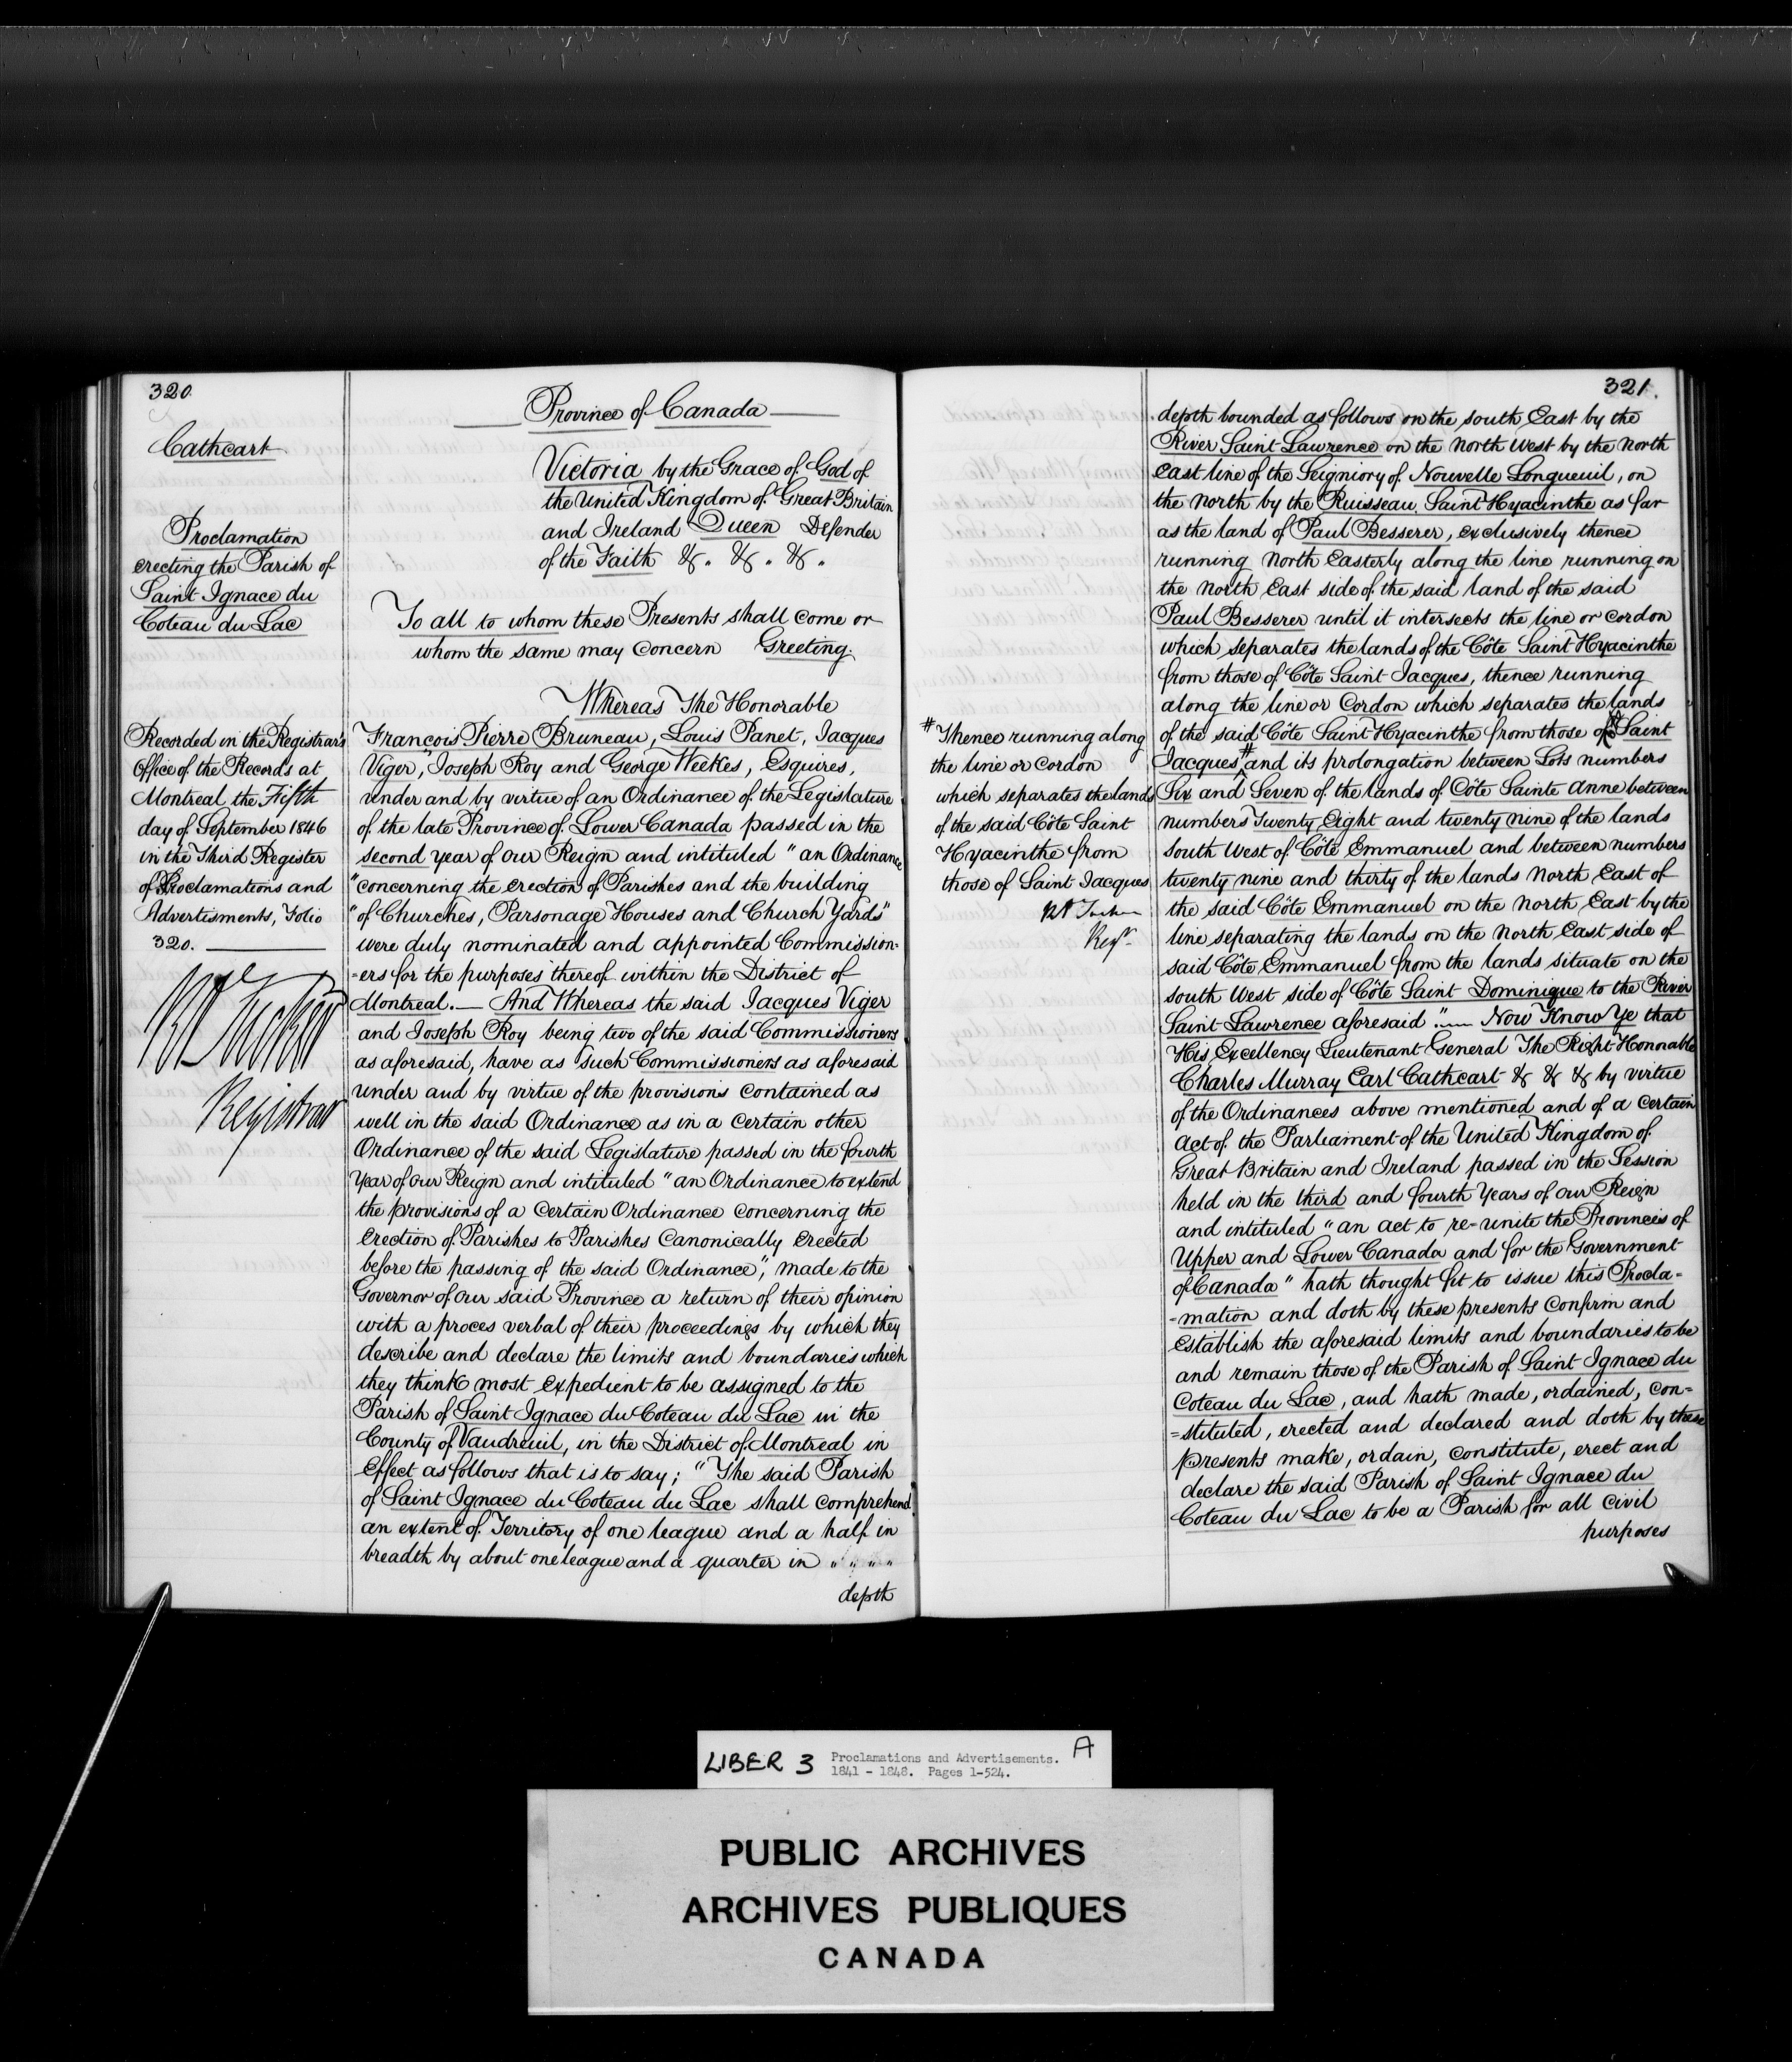 320.
Cathcart
Proclamation
erecting the Parish of
Saint Ignace du
Coteau du Lac
Recorded in the Registrar's
Office of the Records at
Montreal the Fifth
day of September 1846
in the Third Register
of Proclamations and
Advertisments, Folio
320.
Registrar
Province of Canada
Victoria by the Grace of God of
the United Kingdom of Great Britain
and Ireland Queen Defender
of the Faith &. &. &.
To all to whom these Presents shall come or
whom the same may concern Greeting.
Whereas The Honorable
François Pierre Bruneau, Louis Panet, Jacques
Viger, Joseph Roy and George Weekes, Esquires,
under and by virtue of an Ordinance of the Legislature
of the late Province of Lower Canada passed in the
second year of our Reign and intituled "an Ordinance
"concerning the erection of Parishes and the building
"of Churches, Parsonage Houses and Church Yards"
were duly nominated and appointed Commission=
=ers for the purposes thereof within the District of
Montreal.— And Whereas the said Jacques Viger
and Joseph Roy being two of the said Commissioners
as aforesaid, have as such Commissioners as aforesaid
under and by virtue of the provisions contained as
well in the said Ordinance as in a certain other
Ordinance of the said Legislature passed in the fourth
Year of our Reign and intituled "an Ordinance to extend
the provisions of a certain Ordinance concerning the
Erection of Parishes to Parishes Canonically Erected
before the passing of the said Ordinance", made to the
Governor of our said Province a return of their opinion
with a proces verbal of their proceedings by which they
describe and declare the limits and boundaries which
they think most expedient to be assigned to the
Parish of Saint Ignace du Coteau du Lac in the
County of Vaudreuil, in the District of Montreal in
Effect as follows that is to say; "The said Parish
of Saint Ignace du Coteau du Lac shall comprehend
an extent of Territory of one league and a half in
breadth by about one league and a quarter in " " " "
depth
321.
depth bounded as follows on the south East by the
River Saint Lawrence on the North West by the North
East line of the Seigniory of Nouvelle Longueuil, on
the North by the Ruisseau Saint Hyacinthe as far
as the land of Paul Besserer, exclusively thence
running North Easterly along the line running on
the North East side of the said land of the said
Paul Besserer until it intersects the line or cordon
which separates the lands of the Côte Saint Hyacinthe
from those of Côte Saint Jacques, thence running
along the line or Cordon which separates the lands
of the said Côte Saint Hyacinthe from those of Saint
Jacques # and its prolongation between Lots numbers
Six and Seven of the lands of Côte Sainte Anne between
numbers Twenty Eight and twenty nine of the lands
South West of Côte Emmanuel and between numbers
twenty nine and thirty of the lands North East of
the said Côte Emmanuel on the North East by the
line separating the lands on the North East side of
said Côte Emmanuel from the lands situate on the
South West side of Côte Saint Dominique to the River
Saint Lawrence aforesaid".— Now Know Ye that
His Excellency Lieutenant General The Right Honorable
Charles Murray Earl Cathcart & & & by virtue
of the Ordinances above mentioned and of a certain
Act of the Parliament of the United Kingdom of
Great Britain and Ireland passed in the Session
held in the third and fourth Years of our Reign
and intituled "an act to re-unite the Provinces of
Upper and Lower Canada and for the Government
of Canada" hath thought fit to issue this Procla=
=mation and doth by these presents Confirm and
Establish the aforesaid limits and boundaries to be
and remain those of the Parish of Saint Ignace du
Coteau du Lac, and hath made, ordained, con=
=stituted, erected and declared and doth by these
presents make, ordain, constitute, erect and
declare the said Parish of Saint Ignace du
Coteau du Lac to be a Parish for all Civil
purposes
# Thence running along
the line or Cordon
which separates the lands
of the said Côte Saint
Hyacinthe from
those of Saint Jacques
Regr.
LIBER 3 Proclamations and Advertisements. A
1841 - 1848. Pages 1-524.
PUBLIC ARCHIVES
ARCHIVES PUBLIQUES
CANADA